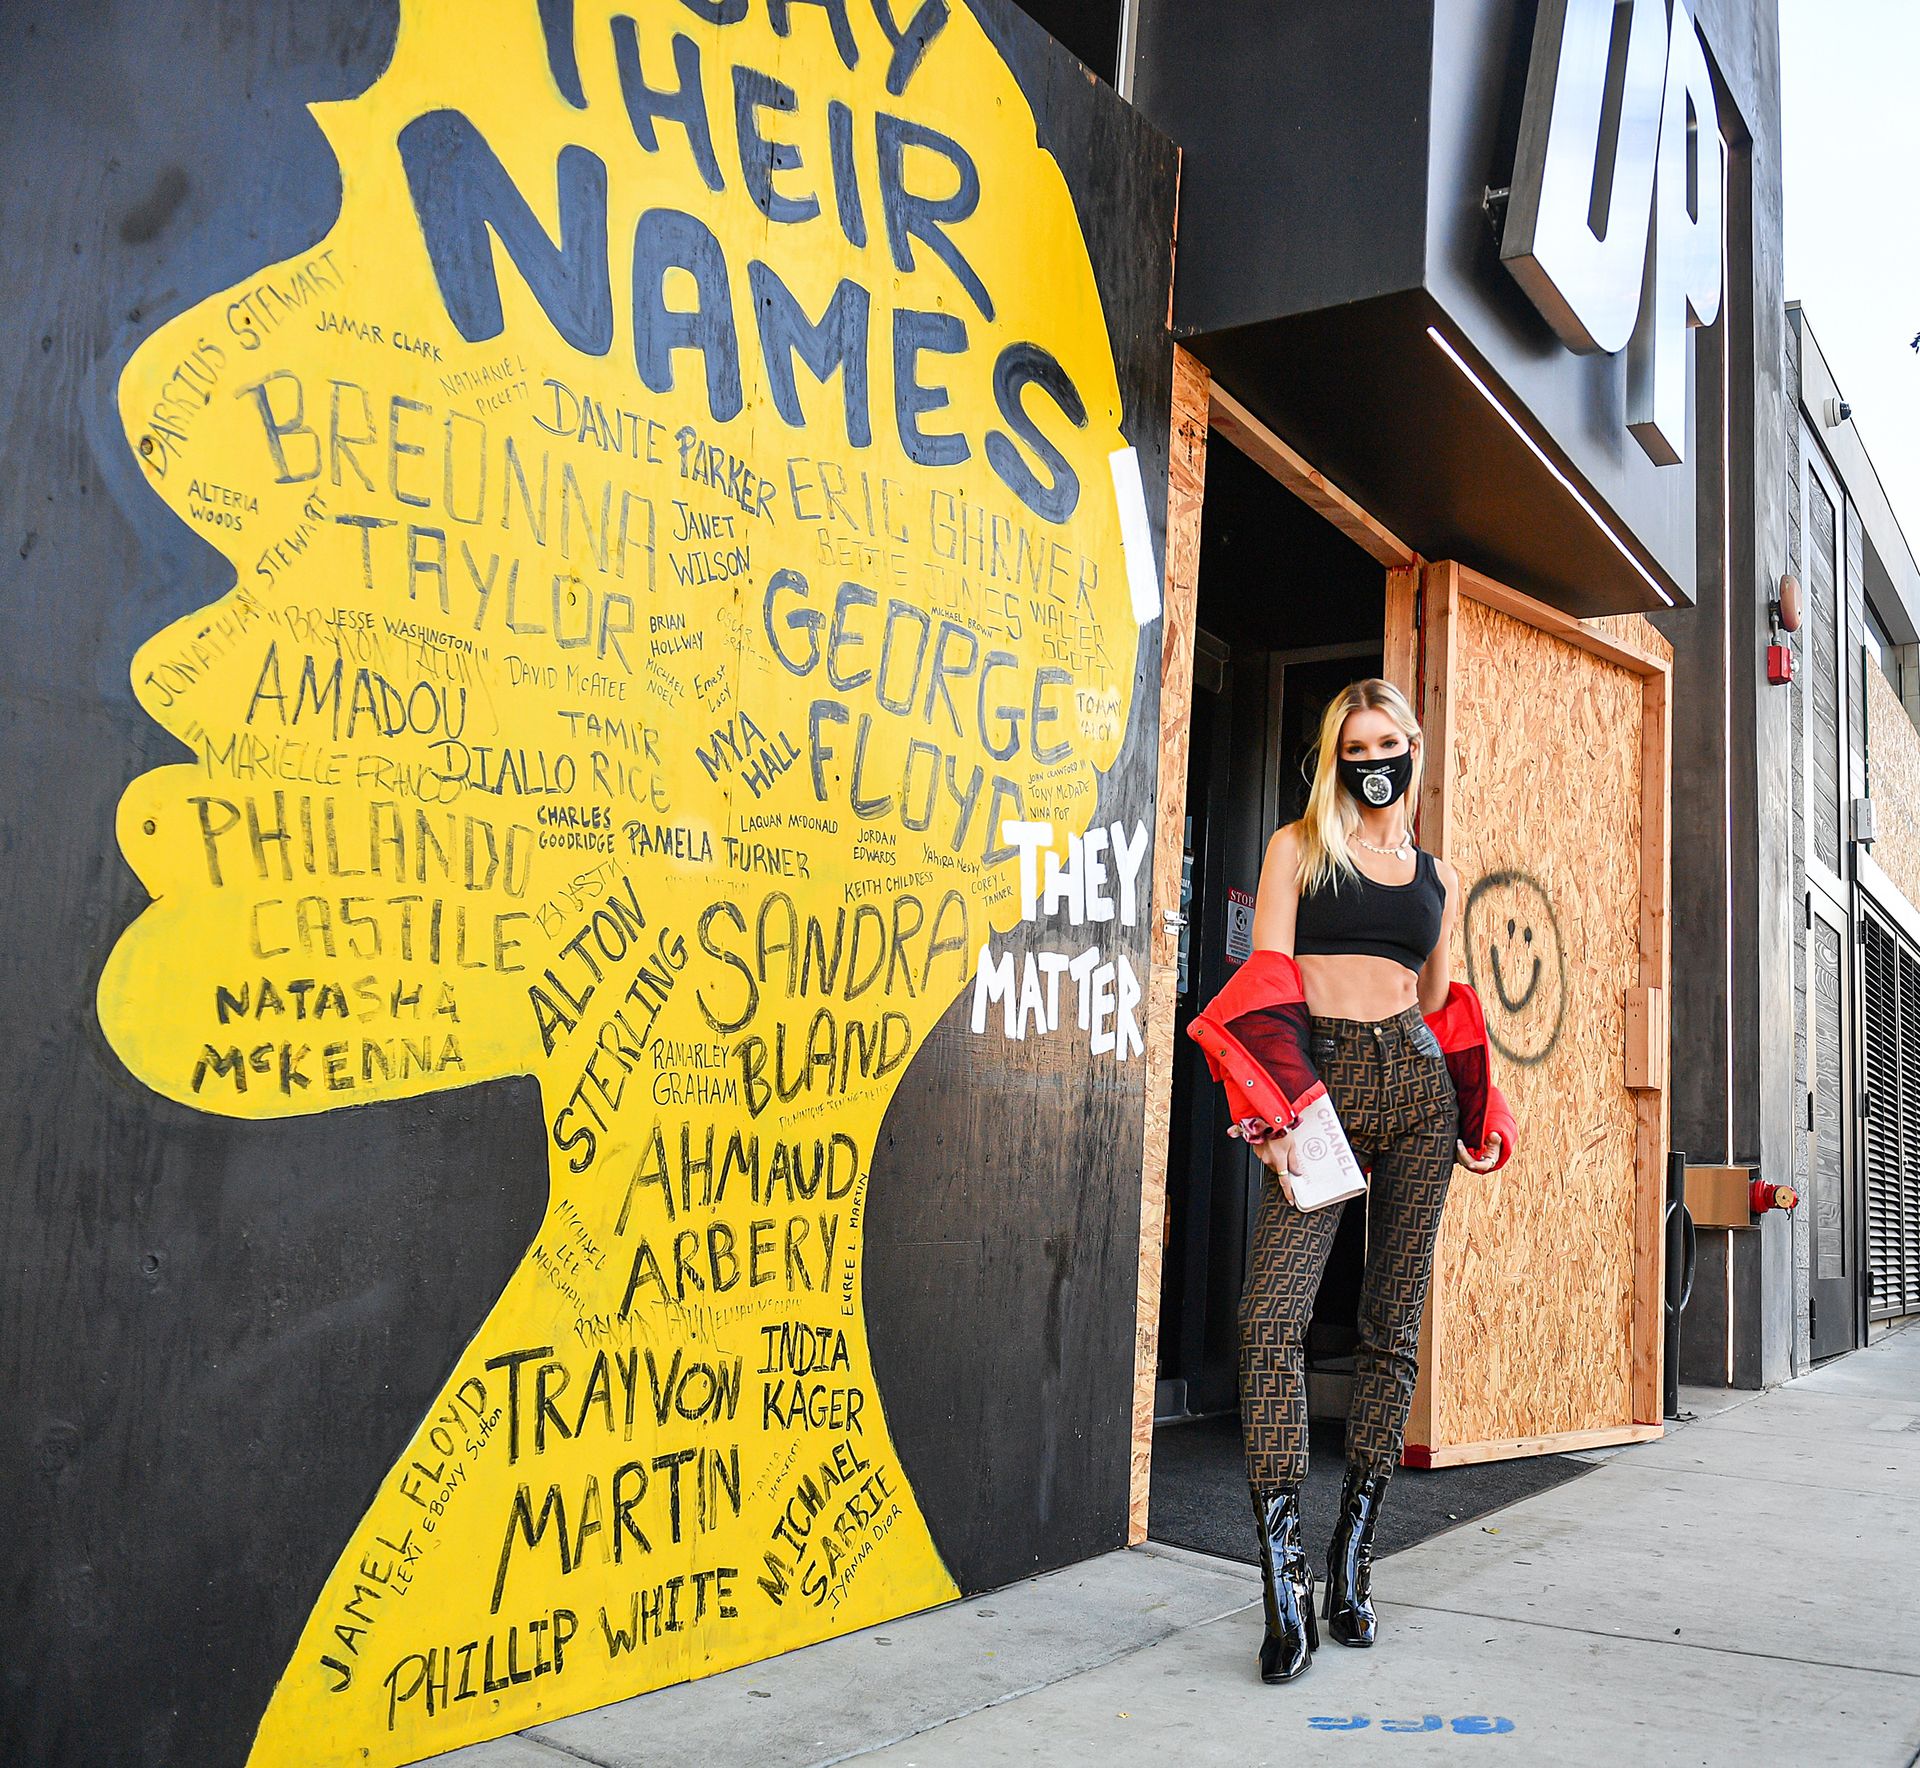 SAY
THEIR
NAMES
DARRIUS STEWART
JAMAR CLARK
NATHANIEL
PICKETT
BREONNA
TAYLOR
DANTE
PARKER
ERIC GARNER
ALTERIA
WOODS
JANET
WILSON
BETTIE JONES
MICHAEL BROWN
WALTER
SCOTT
GEORGE
FLOYD
JONATHAN STEWART
JESSE WASHINGTON
BRIAN
HOLLWAY
OSCAR
GRANT
MICHAEL
NOEL
Ernest
Lacy
DAVID McATEE
AMADOU
DIALLO
TAMIR
RICE
MYA
HALL
TOMMY
YANCY
JOHN CRAWFORD III
TONY McDADE
NINA POP
"MARIELLE FRANCO
PHILANDO
CASTILE
CHARLES
GOODRIDGE
PAMELA TURNER
LAQUAN McDONALD
JORDAN
EDWARDS
Yahira Nesby
KEITH CHILDRESS
COREY L
TANNER
THEY
MATTER
NATASHA
McKENNA
ALTON
STERLING
SANDRA
BLAND
RAMARLEY
GRAHAM
AHMAUD
ARBERY
EUREE L. MARTIN
MICHAEL
LEE
MARSHALL
ELIJAH McCLAIN
TRAYVON
MARTIN
INDIA
KAGER
JAMEL FLOYD
LEXI EBONY Sutton
MICHAEL
SABBIE
IYANNA DIOR
PHILLIP WHITE
UP
STOP
CHANEL